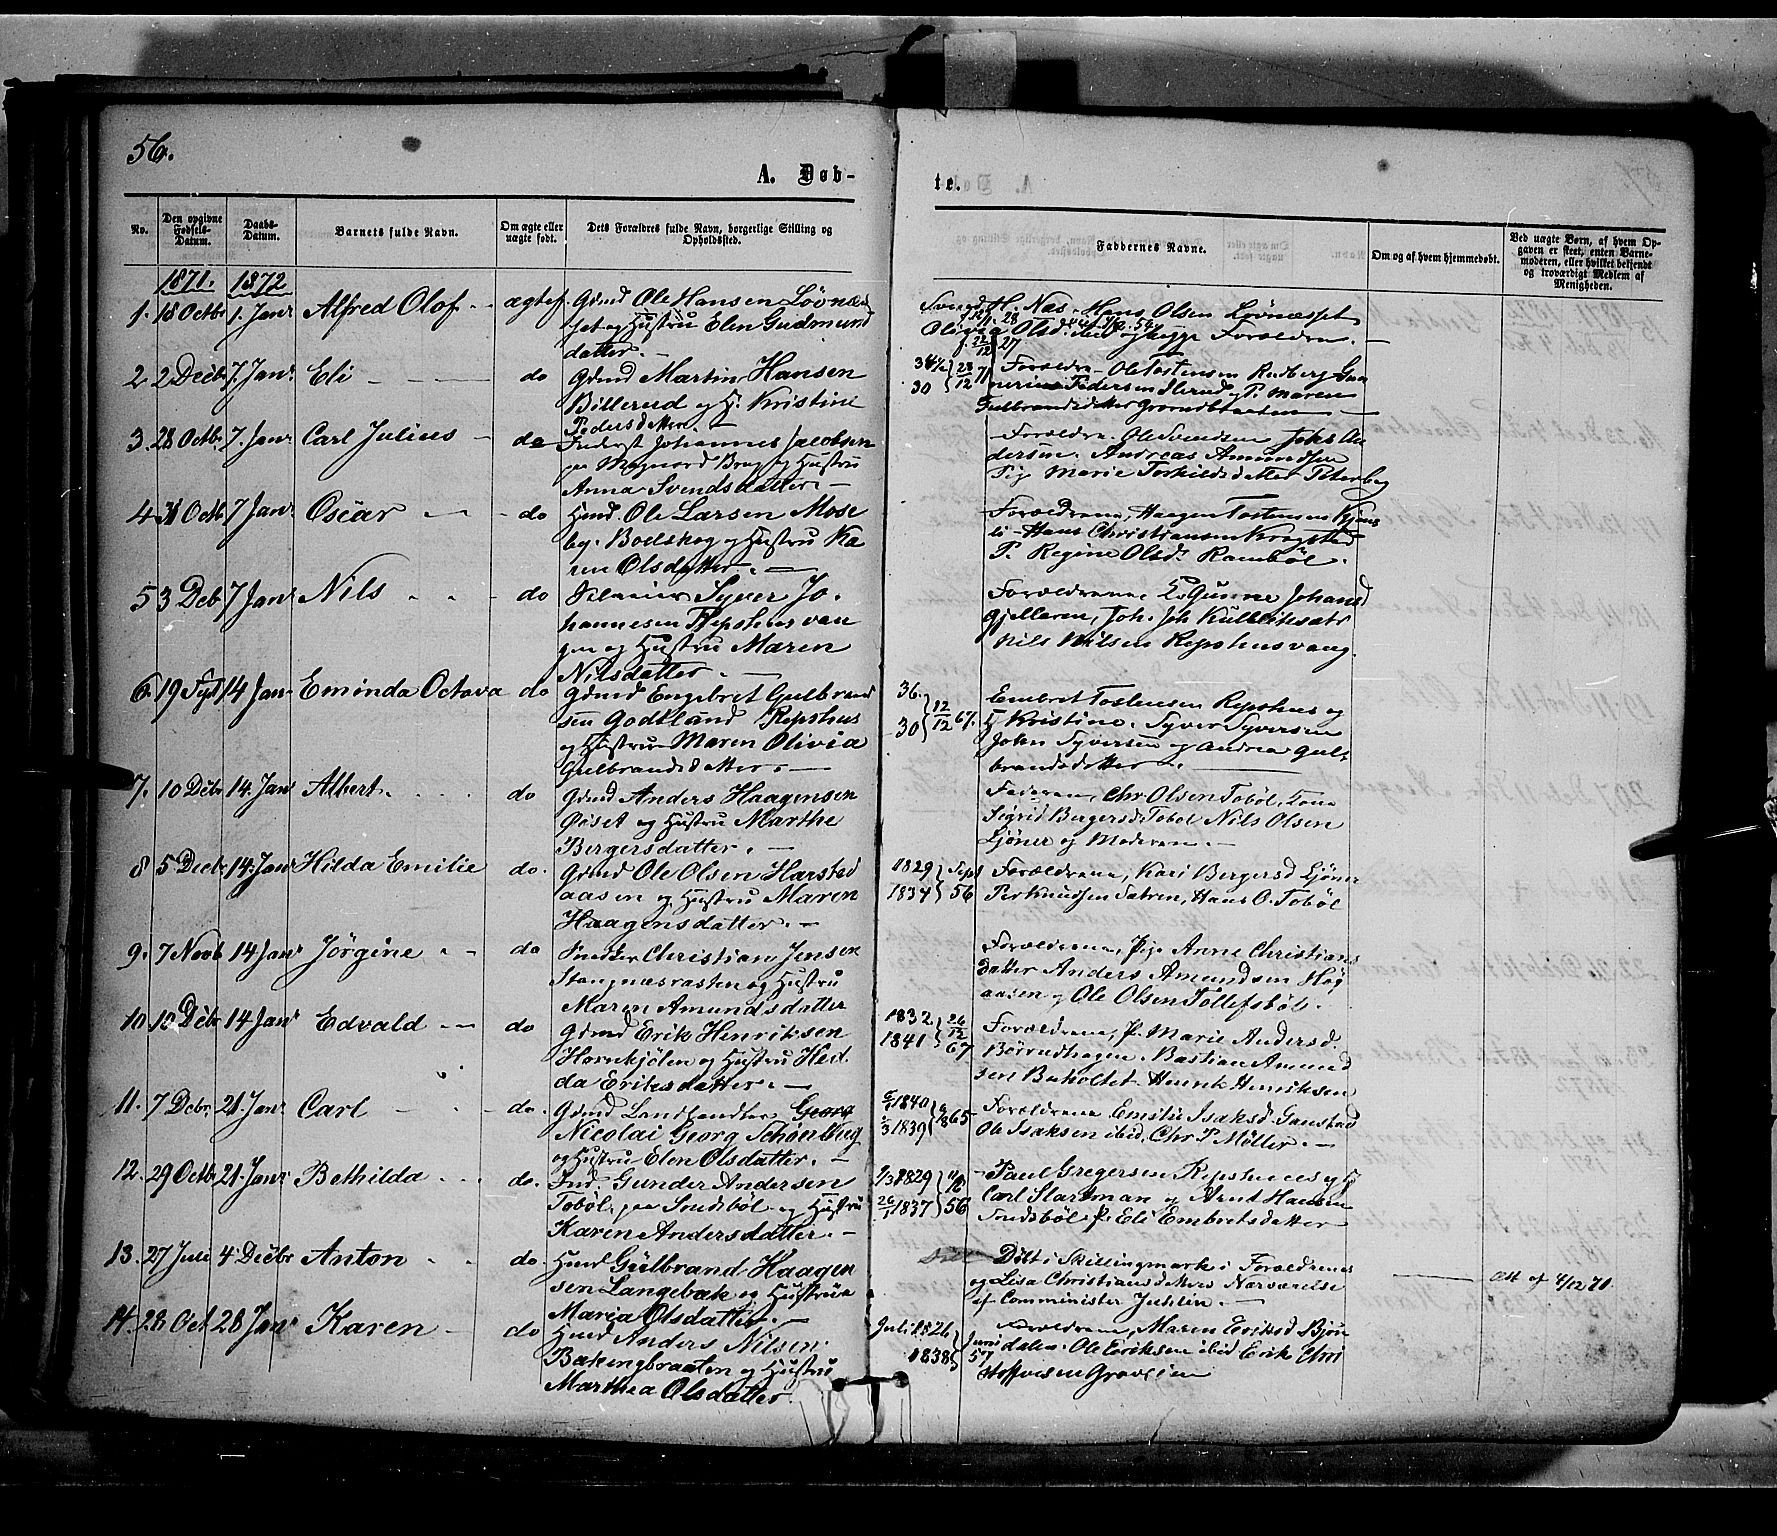 56.
A. Døb-
te.
No.
Den opgivne Fødsels-Datum.
Daabs-Datum.
Barnets fulde Navn.
Om ægte eller uægte født.
Dets Forældres fulde Navn, borgerlige Stilling og Opholdssted.
Faddernes Navne.
Om og af hvem hjemmedøbt.
Ved uægte Børn, af hvem Opgaven er skeet, enten Barnemoderen, eller hvilket bekjendt og troværdigt Medlem af Menigheden.
1871. 1872
1. 18 Octbr 1. Janr Alfred Olof ægtef. Gdmd Ole Hansen Løvnæs
set og Hustru Elen Gudmunds
datter.
Svend H. Næs. Hans Olsen Løvnæsset
Forældre.
2 2 Decbr 7. Janr. Eli do Gdmd Martin Hansen
Billerud og H. Kristine
Pedersdatter
30 23/12 71
Forældre Ole Tostensen Rudberg
Pedersen P. Maren
Gulbrandsdatter
3. 28 Octbr. 7. Janr Carl Julius do Inderst Johannes Jacobsen
paa Magnord Brug og Hustru
Anna Svendsdatter
Forældre. Ole Svendsen Johs An
dersen. Andreas Amundsen
Pig Marie Torkildsdatter
4 31 Octb 7 Janr Oscar do Husmd. Ole Larsen Mose
by. Bodskog og Hustru Ka
ren Olsdatter.
Forældrene, Haagen Tostensen
Hans Christiansen Krogstad
P. Regine Olsd. Rambøl.
5 3 Deb 7 Janr Nils do Syver Jo
hannesen Repshusvan
gen og Hustru Maren
Nilsdatter
Forældrene, E. Gunne Johansd
Gjelleren, Joh. Joh
Nils Nilsen Repshusvang.
6. 19 Sept 14 Jan Eminda Octava do Gdmd Engebret Gulbrand
sen Godtland Repshus
og Hustru Maren Olivia
Gulbrandsdatter.
36. 30 12/12 67.
Embret Tostensen Repshus og
H Kristine. Syver Syversen
John Syversen og Andrea Gul
brandsdatter
7. 10 Debr 14. Jan Albert. do Gdmd Anders Haagensen
og Hustru Marthe
Bergersdatter.
Faderen, Chr Olsen Tobøl, Kone
Sigrid Bergersd Tobøl Nils Olsen
Ljøner og Moderen.
8 5 Decbr 14. Jan Hilda Emilie do. Gdmd Ole Olsen Harsted
aasen og Hustru Maren
Haagensdatter.
1829 1834 Sept 56
Forældrene, Kari Bergersd Ljøner
Per Knudsen Sætren, Hans O. Tobøl
9. 7 Novb 14 Janr Jörgine do Snedker Christian Jensen
Stangnæsrasten og Hustru
Maren Amundsdatter
Forældrene, Pige Anne Christians
datter Anders Amundsen Høg
aasen og Ole Olsen Tøllefsbøl.
10. 10 Debr 14 Janr Edvald do Gdmd Erik Henriksen
Hornkjølen og Hustru Hed
da Eriksdatter.
1832 1841 26/12 67
Forældrene, P. Marie Andersd.
Børrudhagen. Bastian Amund
sen Buholtet Henrik Henriksen
11. 7 Debr. 21 Janr Carl do. Gdmd Landhandler Georg
Nicolai Georg Schønberg
og Hustru Elen Olsdatter.
1840 1839 1865
Forældrene Emilie Isaksd Gaustad
Ole Isaksen ibid, Chr P. Møller.
12. 29 Octbr 21. Janr Bethilda do. Ind. Gunder Andersen
Tobøl paa Sundsbøl og Hustru
Karen Andersdatter.
1829 1837 56
Paul Gregersen Repshus og H
Carl Startman og Arnt Hansen
Sundsbøl P. Eli Embretsdatter
13. 27 Juli 4 Decbr Anton do. Husmd Gülbrand Haagen
sen Langebæk og Hustrue
Maria Olsdatter.
Döbt i Skillingmark i Forældrenes
og Lisa Christiansdatters Nærværelse
af Comminister Juhlin.
att af 4/12 71.
14. 28 Oct 28 Janr Karen do Husmd Anders Nilsen
Bækengbraaten og Hustru
Marthea Olsdatter.
Juli 1826 1838 Juni 57
Forældrene, Maren Eriksd Bjørn
dalen. Ole Eriksen ibid Erik Chri
stoffersen Gravsien